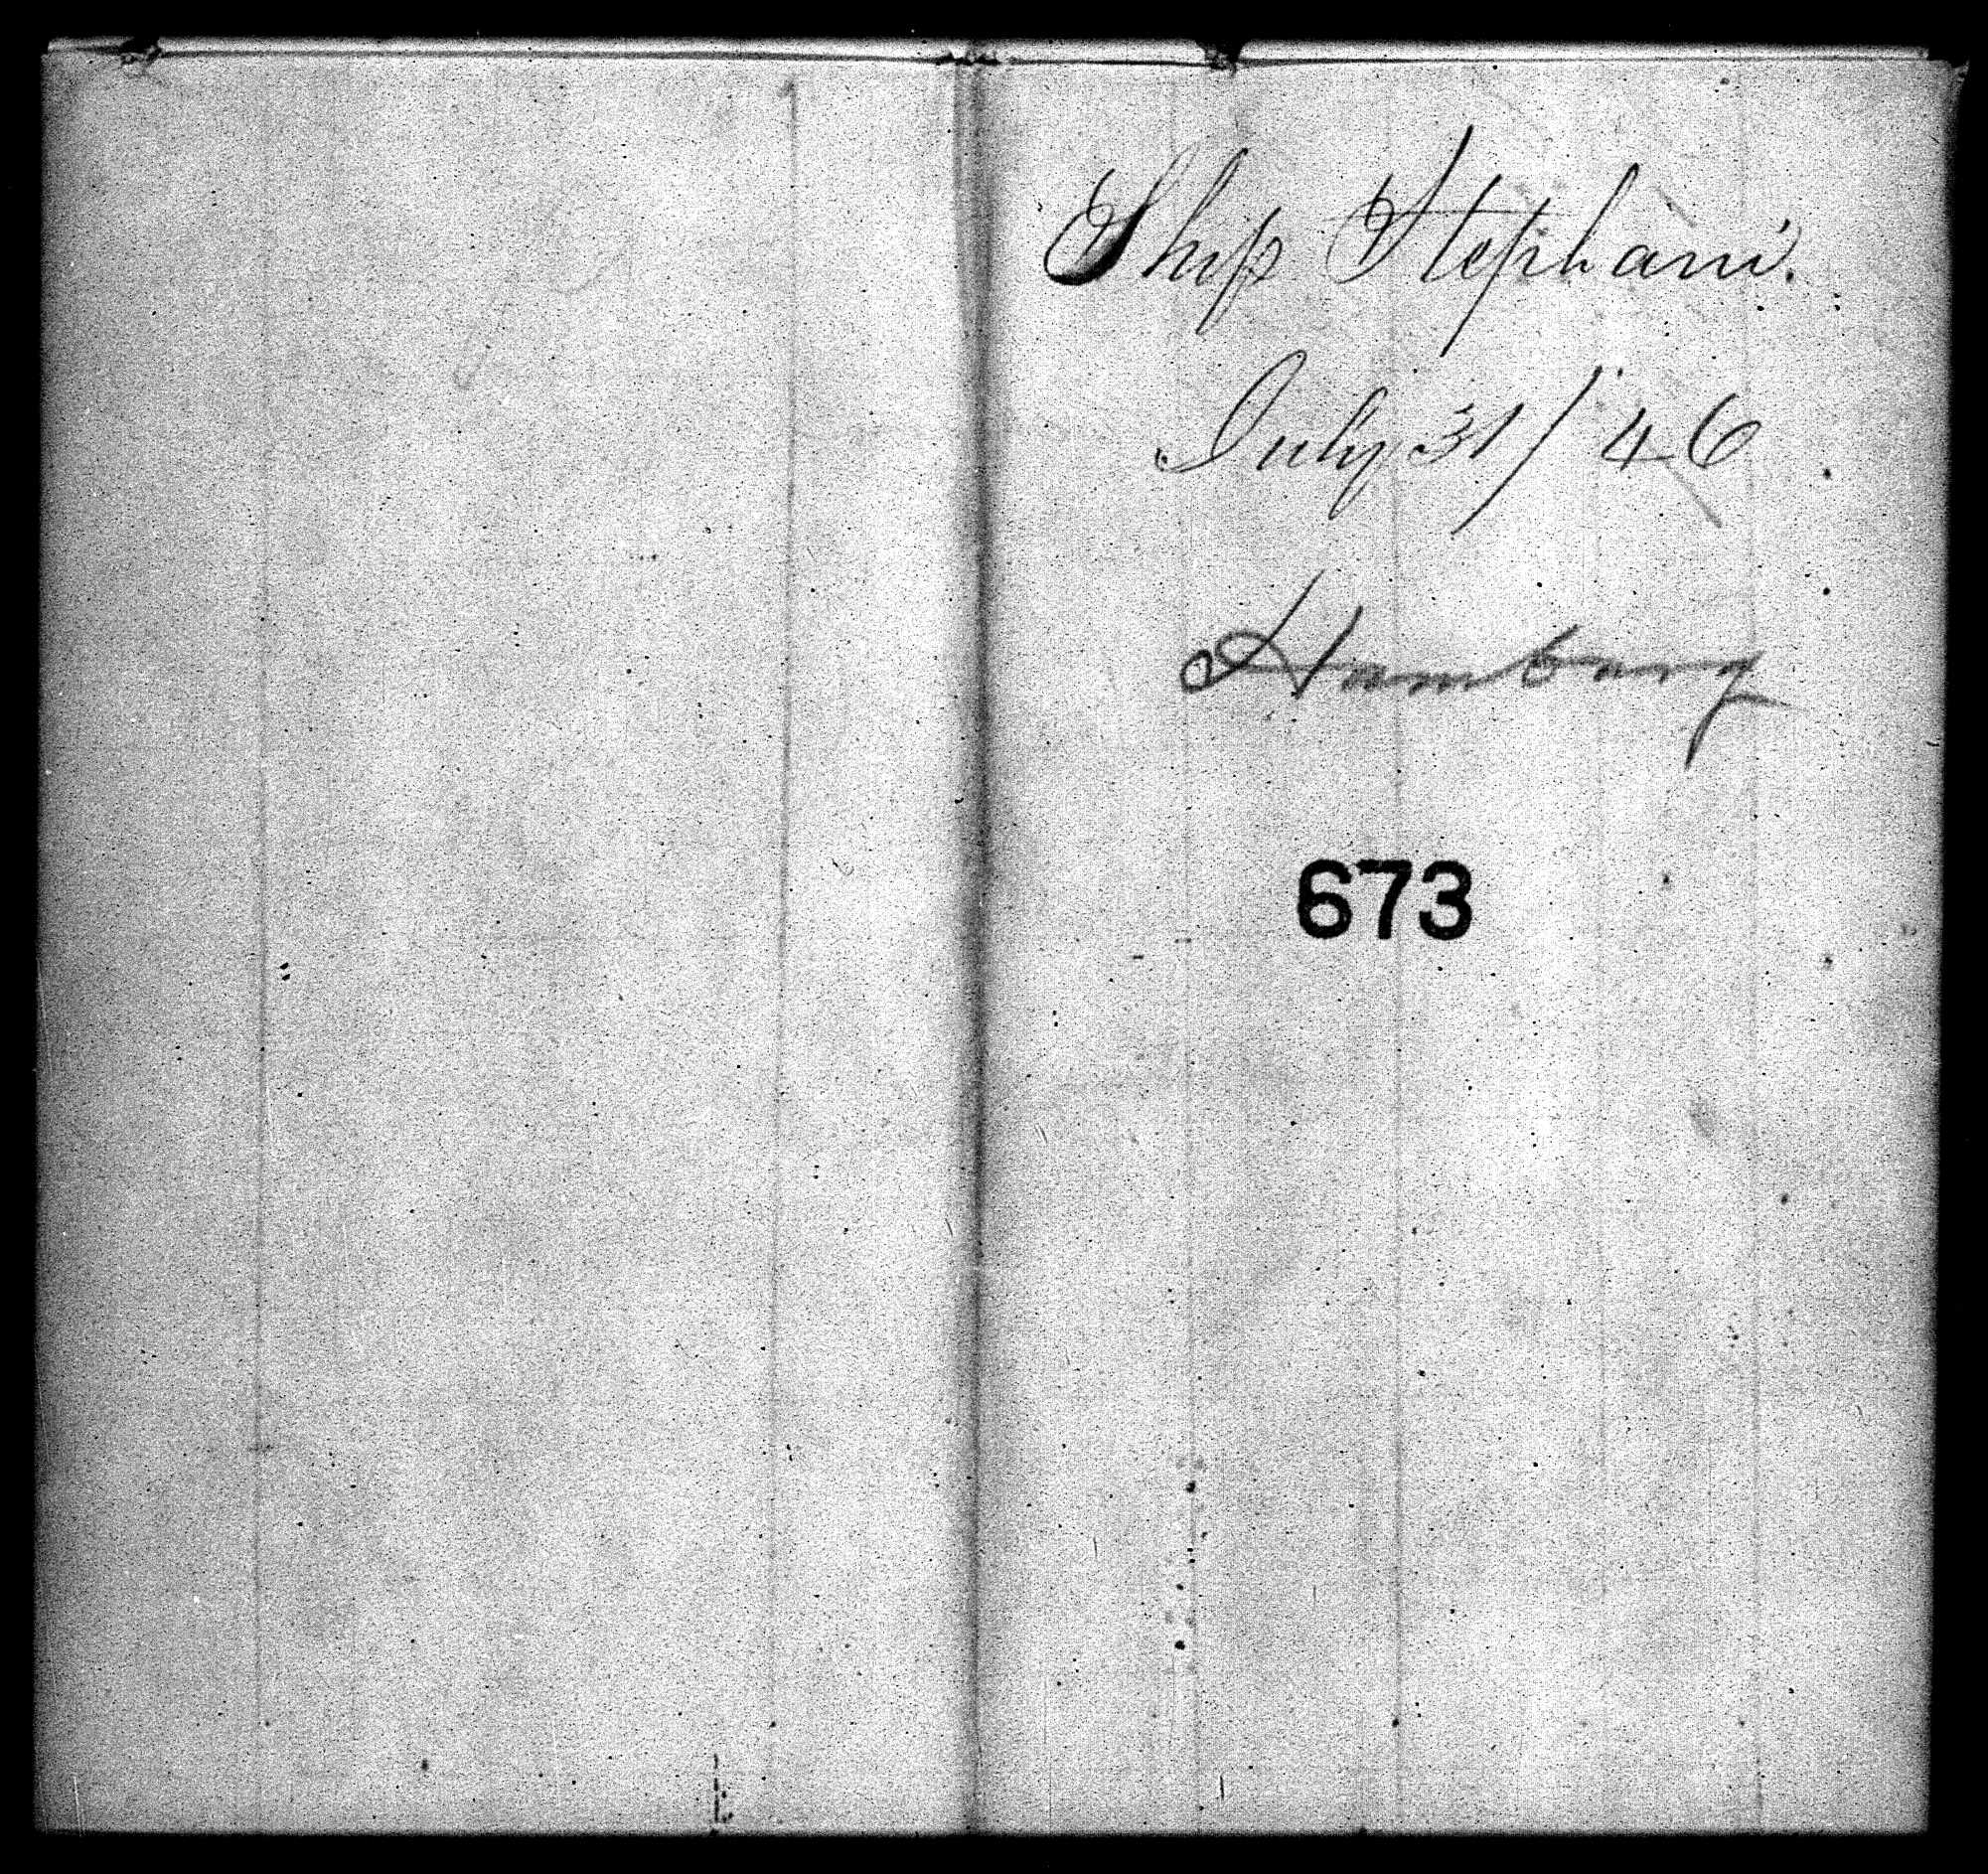 Ship Stephani.
July 31/46
Hamburg
673